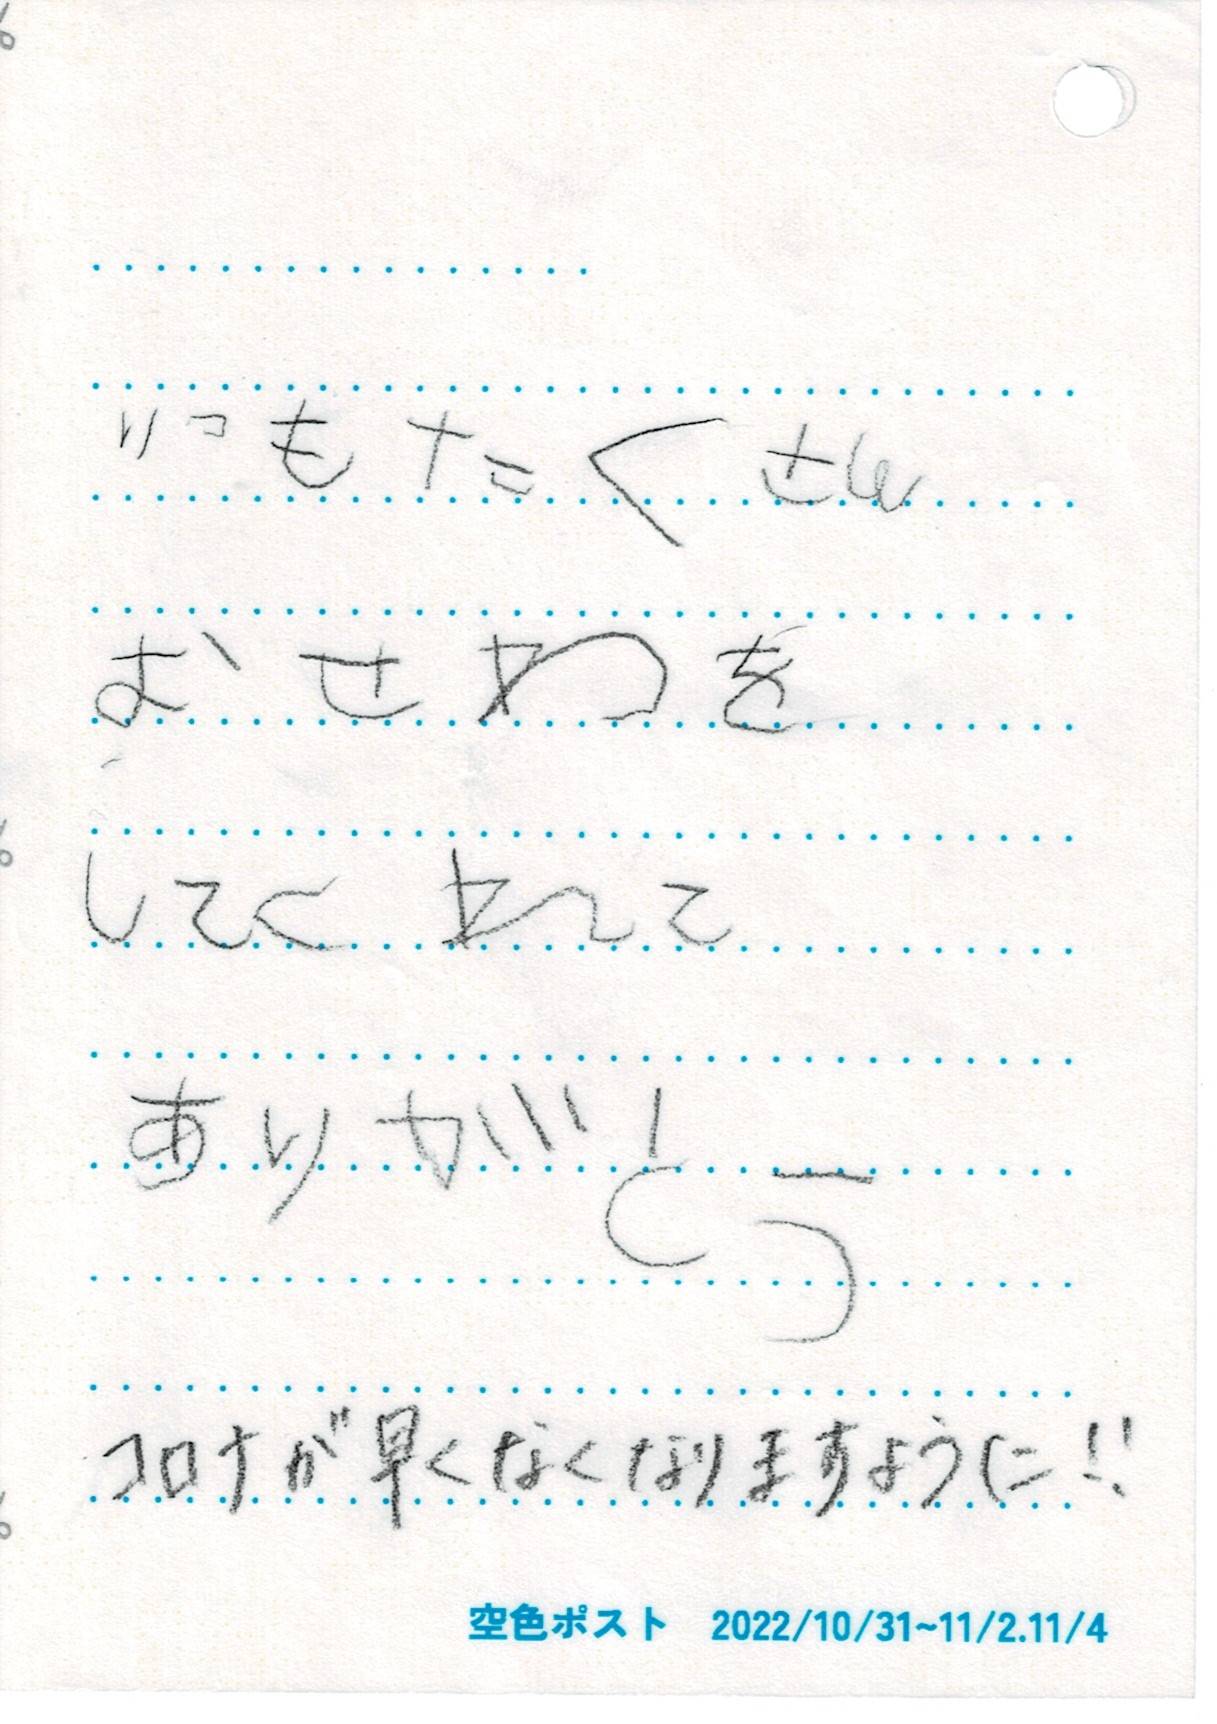 いつもたくさん
おせわを
してくれて
ありがとう
コロナが早くなくなりますように!!
空色ポスト 2022/10/31~11/2.11/4